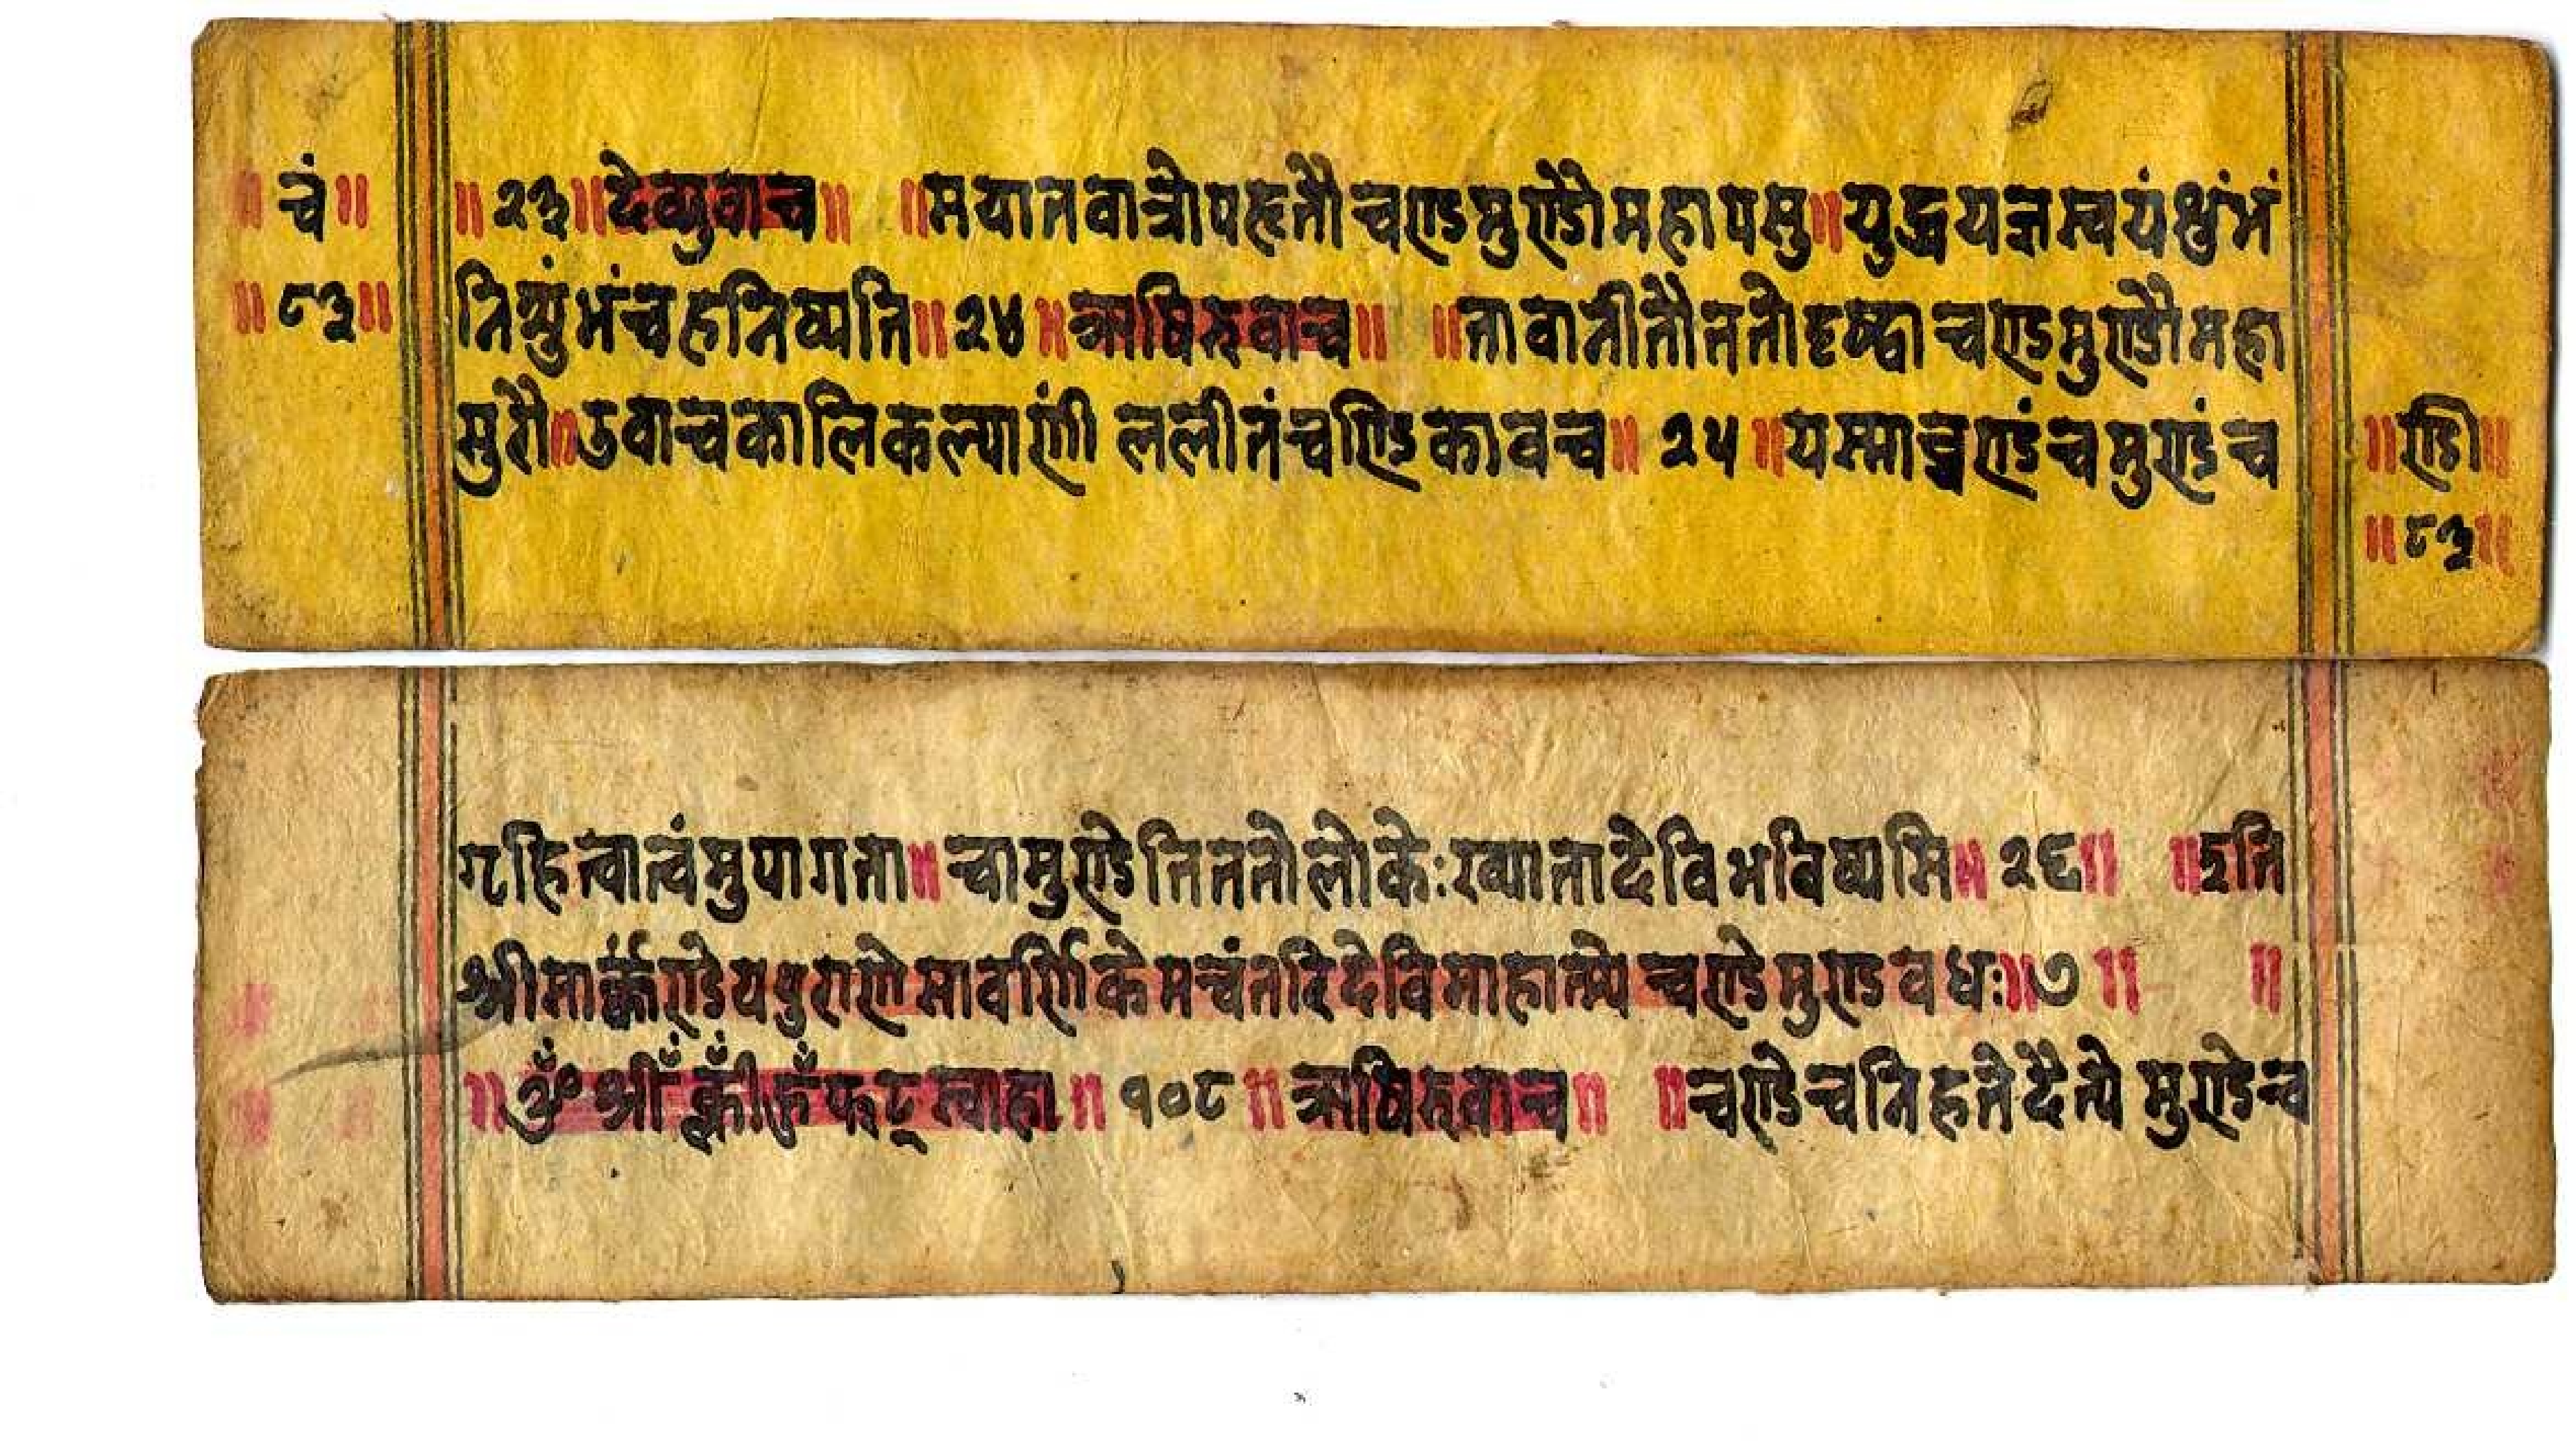 ॥ चं ॥
॥ ८३ ॥
॥ २३ ॥ देव्युवाच ॥ ॥ मयातवात्रोपहृतौ चण्डमुण्डौमहापसु ॥ युद्धयज्ञस्वयंशुंभं
निशुंभंचहनिष्यति ॥ २४ ॥ ऋषिरुवाच ॥ ॥ तावानीतौततोदृष्ट्वा चण्डमुण्डौमहा
सुरौ ॥ उवाचकालिकल्याणीं ललीतंचण्डिकावच ॥ २५ ॥ यस्माच्चण्डंचमुण्डंच
॥ ण्डी ॥
॥ ८३ ॥
गृहित्वात्वंमुपागता ॥ चामुण्डेतिततोलोकेःख्यातादेविभविष्यसि ॥ २६ ॥ ॥ इति
श्रीमार्क्कण्डेयपुराणेसावर्णिकेमन्वंतरिदेविमाहात्म्ये चण्डेमुण्डवधः ॥ ७ ॥ ॥
॥ ॐ श्रीँ क्लीँ हुँ फट् स्वाहा ॥ १०८ ॥ ऋषिरुवाच ॥ ॥ चण्डेचनिहतेदैत्ये मुण्डेच